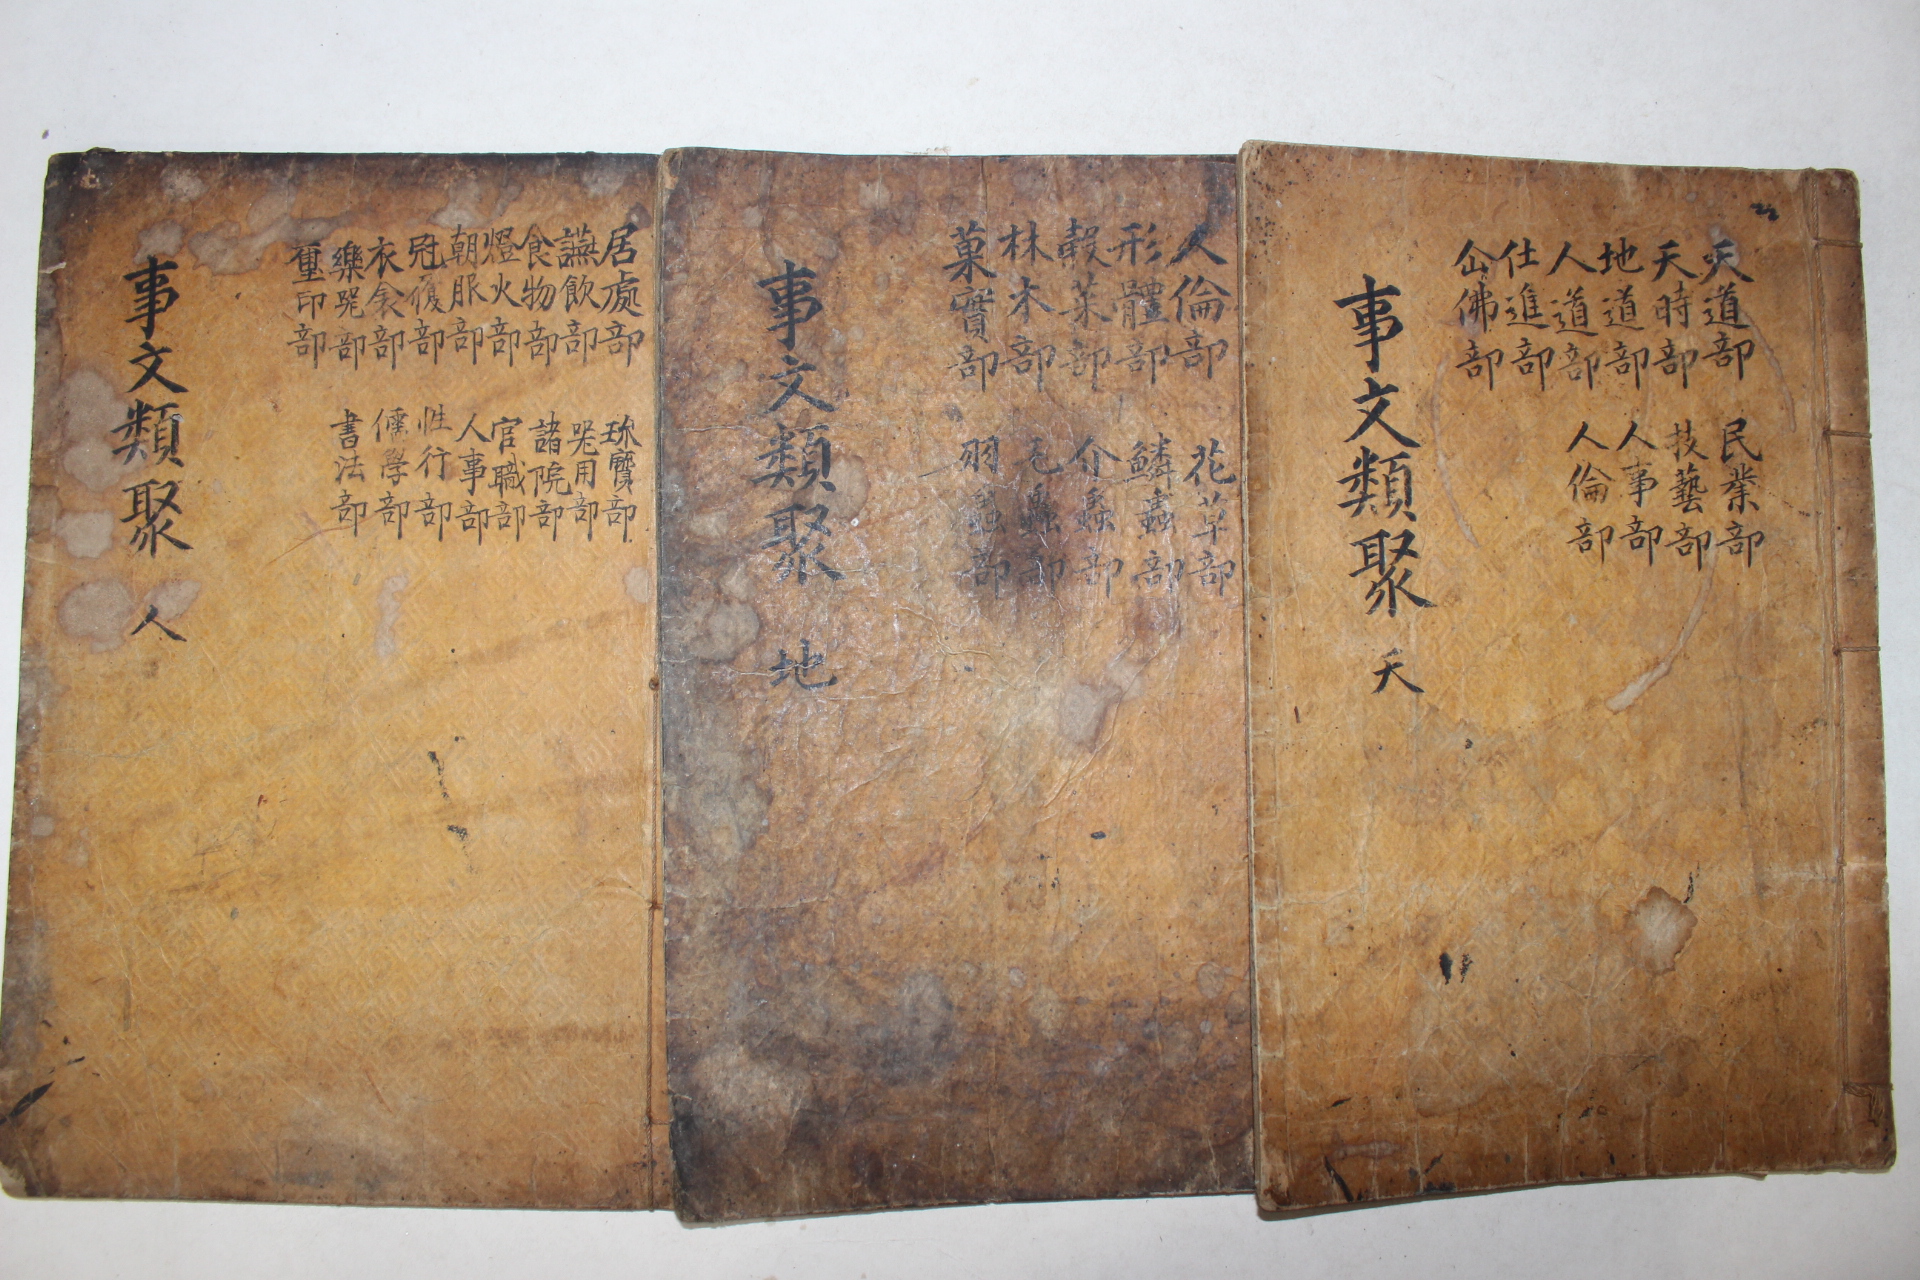 天道部
天時部
地道部
人道部
仕進部
仙佛部
民業部
技藝部
人事部
人倫部
事文類聚 天
人倫部
形體部
穀菜部
林木部
菓實部
花草部
鱗蟲部
介蟲部
毛蟲部
羽蟲部
事文類聚 地
居處部
讌飲部
食物部
燈火部
朝服部
冠履部
衣衾部
樂器部
璽印部
珎寶部
器用部
諸院部
官職部
人事部
性行部
儒學部
書法部
事文類聚 人